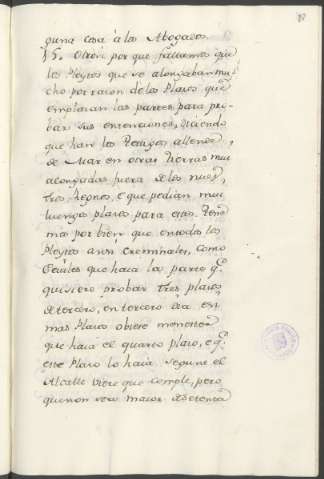 guna cosa á los Abogados.
15. Otrosi por que fallamos que
los Pleytos que se alongaban mu-
cho por razon de los Plazos que
emplazan las partes para pro-
bar sus entenciones, diciendo
que han los Testigos allende
de Mar en otras tierras mui
alongadas fuera de los nues.
tres Regnos, e que pedian mui
luengos plazos para esto. Tene-
mos por bien que en todos los
Pleytos ansi Creminales, como
Ceviles que haia la parte q.
quisiere probar tres plazos
de tercero, en tercero dia e si
mas Plazo obiere menester
que haia el quarto plazo, e q.
este Plazo lo haia segunt el
Alcalle viere que cumple, pero
que non sea maior de treinta